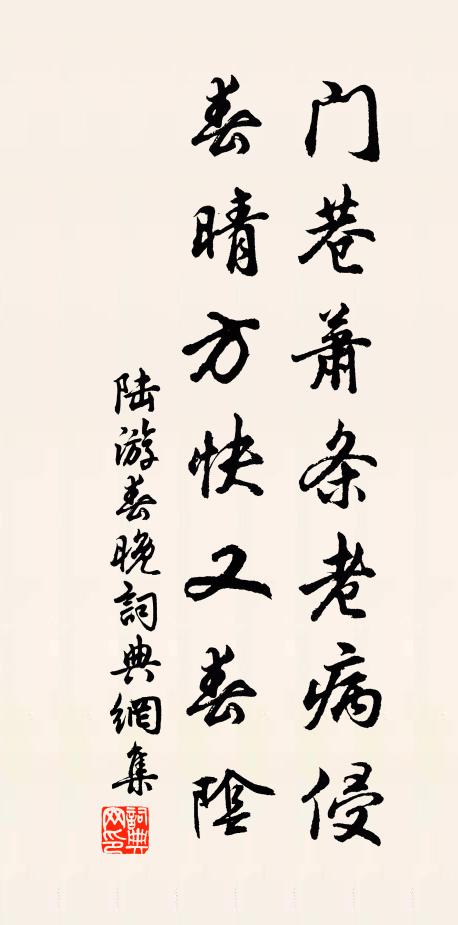 门巷萧条老病侵
春晴方快又春阴
陆游春晚词典網集
詞典網印